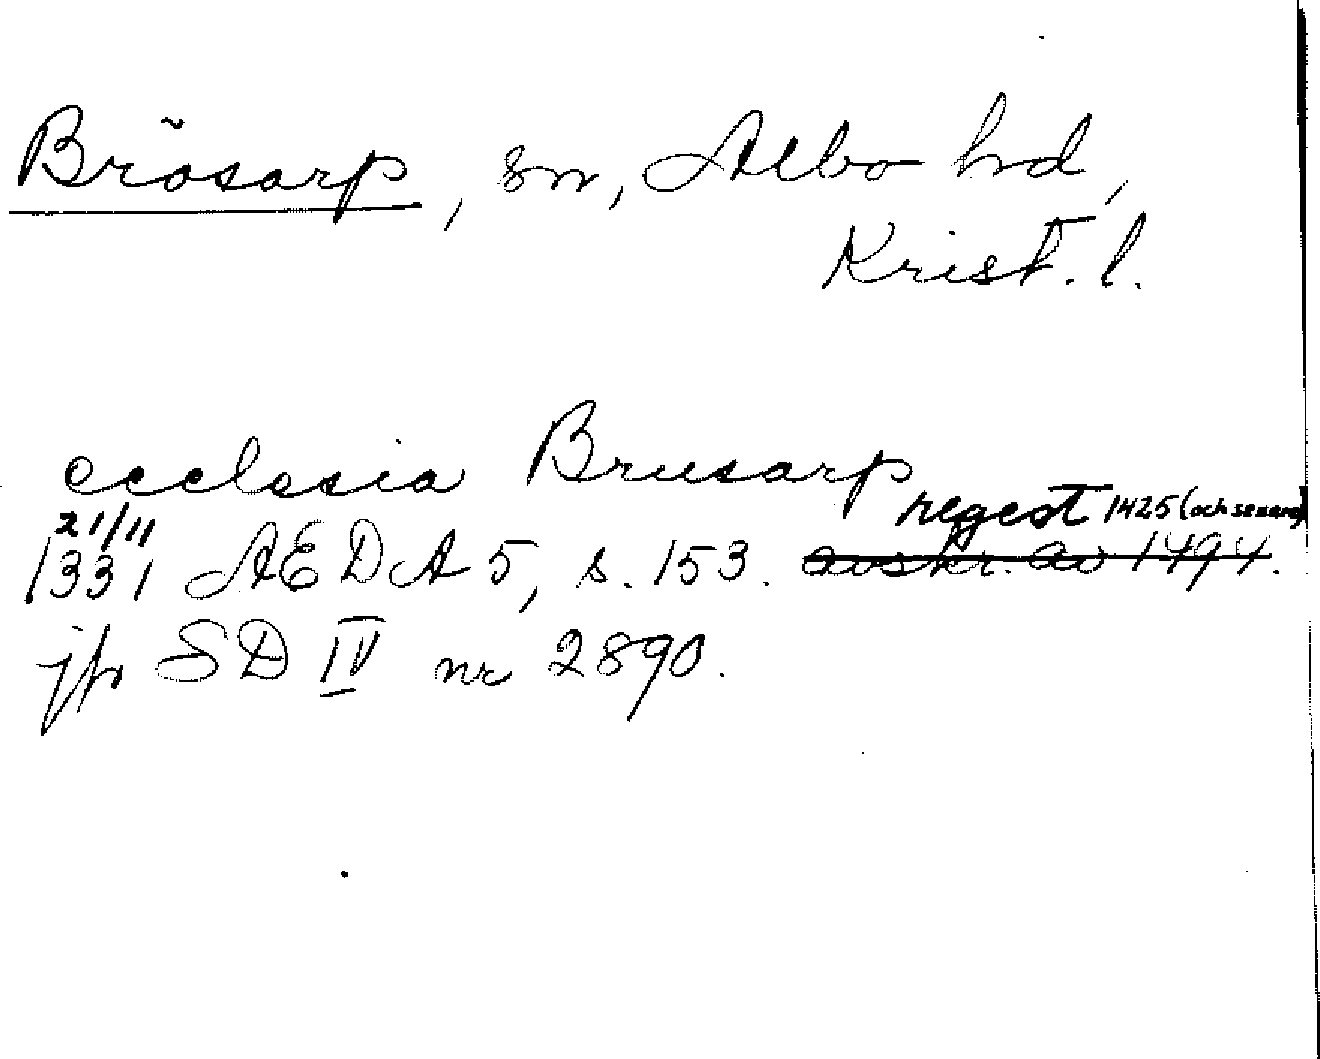 Brösarp, sn, Albo hd,
Krist. l.
ecclesia Brusarp
regest 1425 (och senare)
21/11
1331 AEDA 5, s. 153. avskr. av 1494.
jfr SD IV nr 2890.